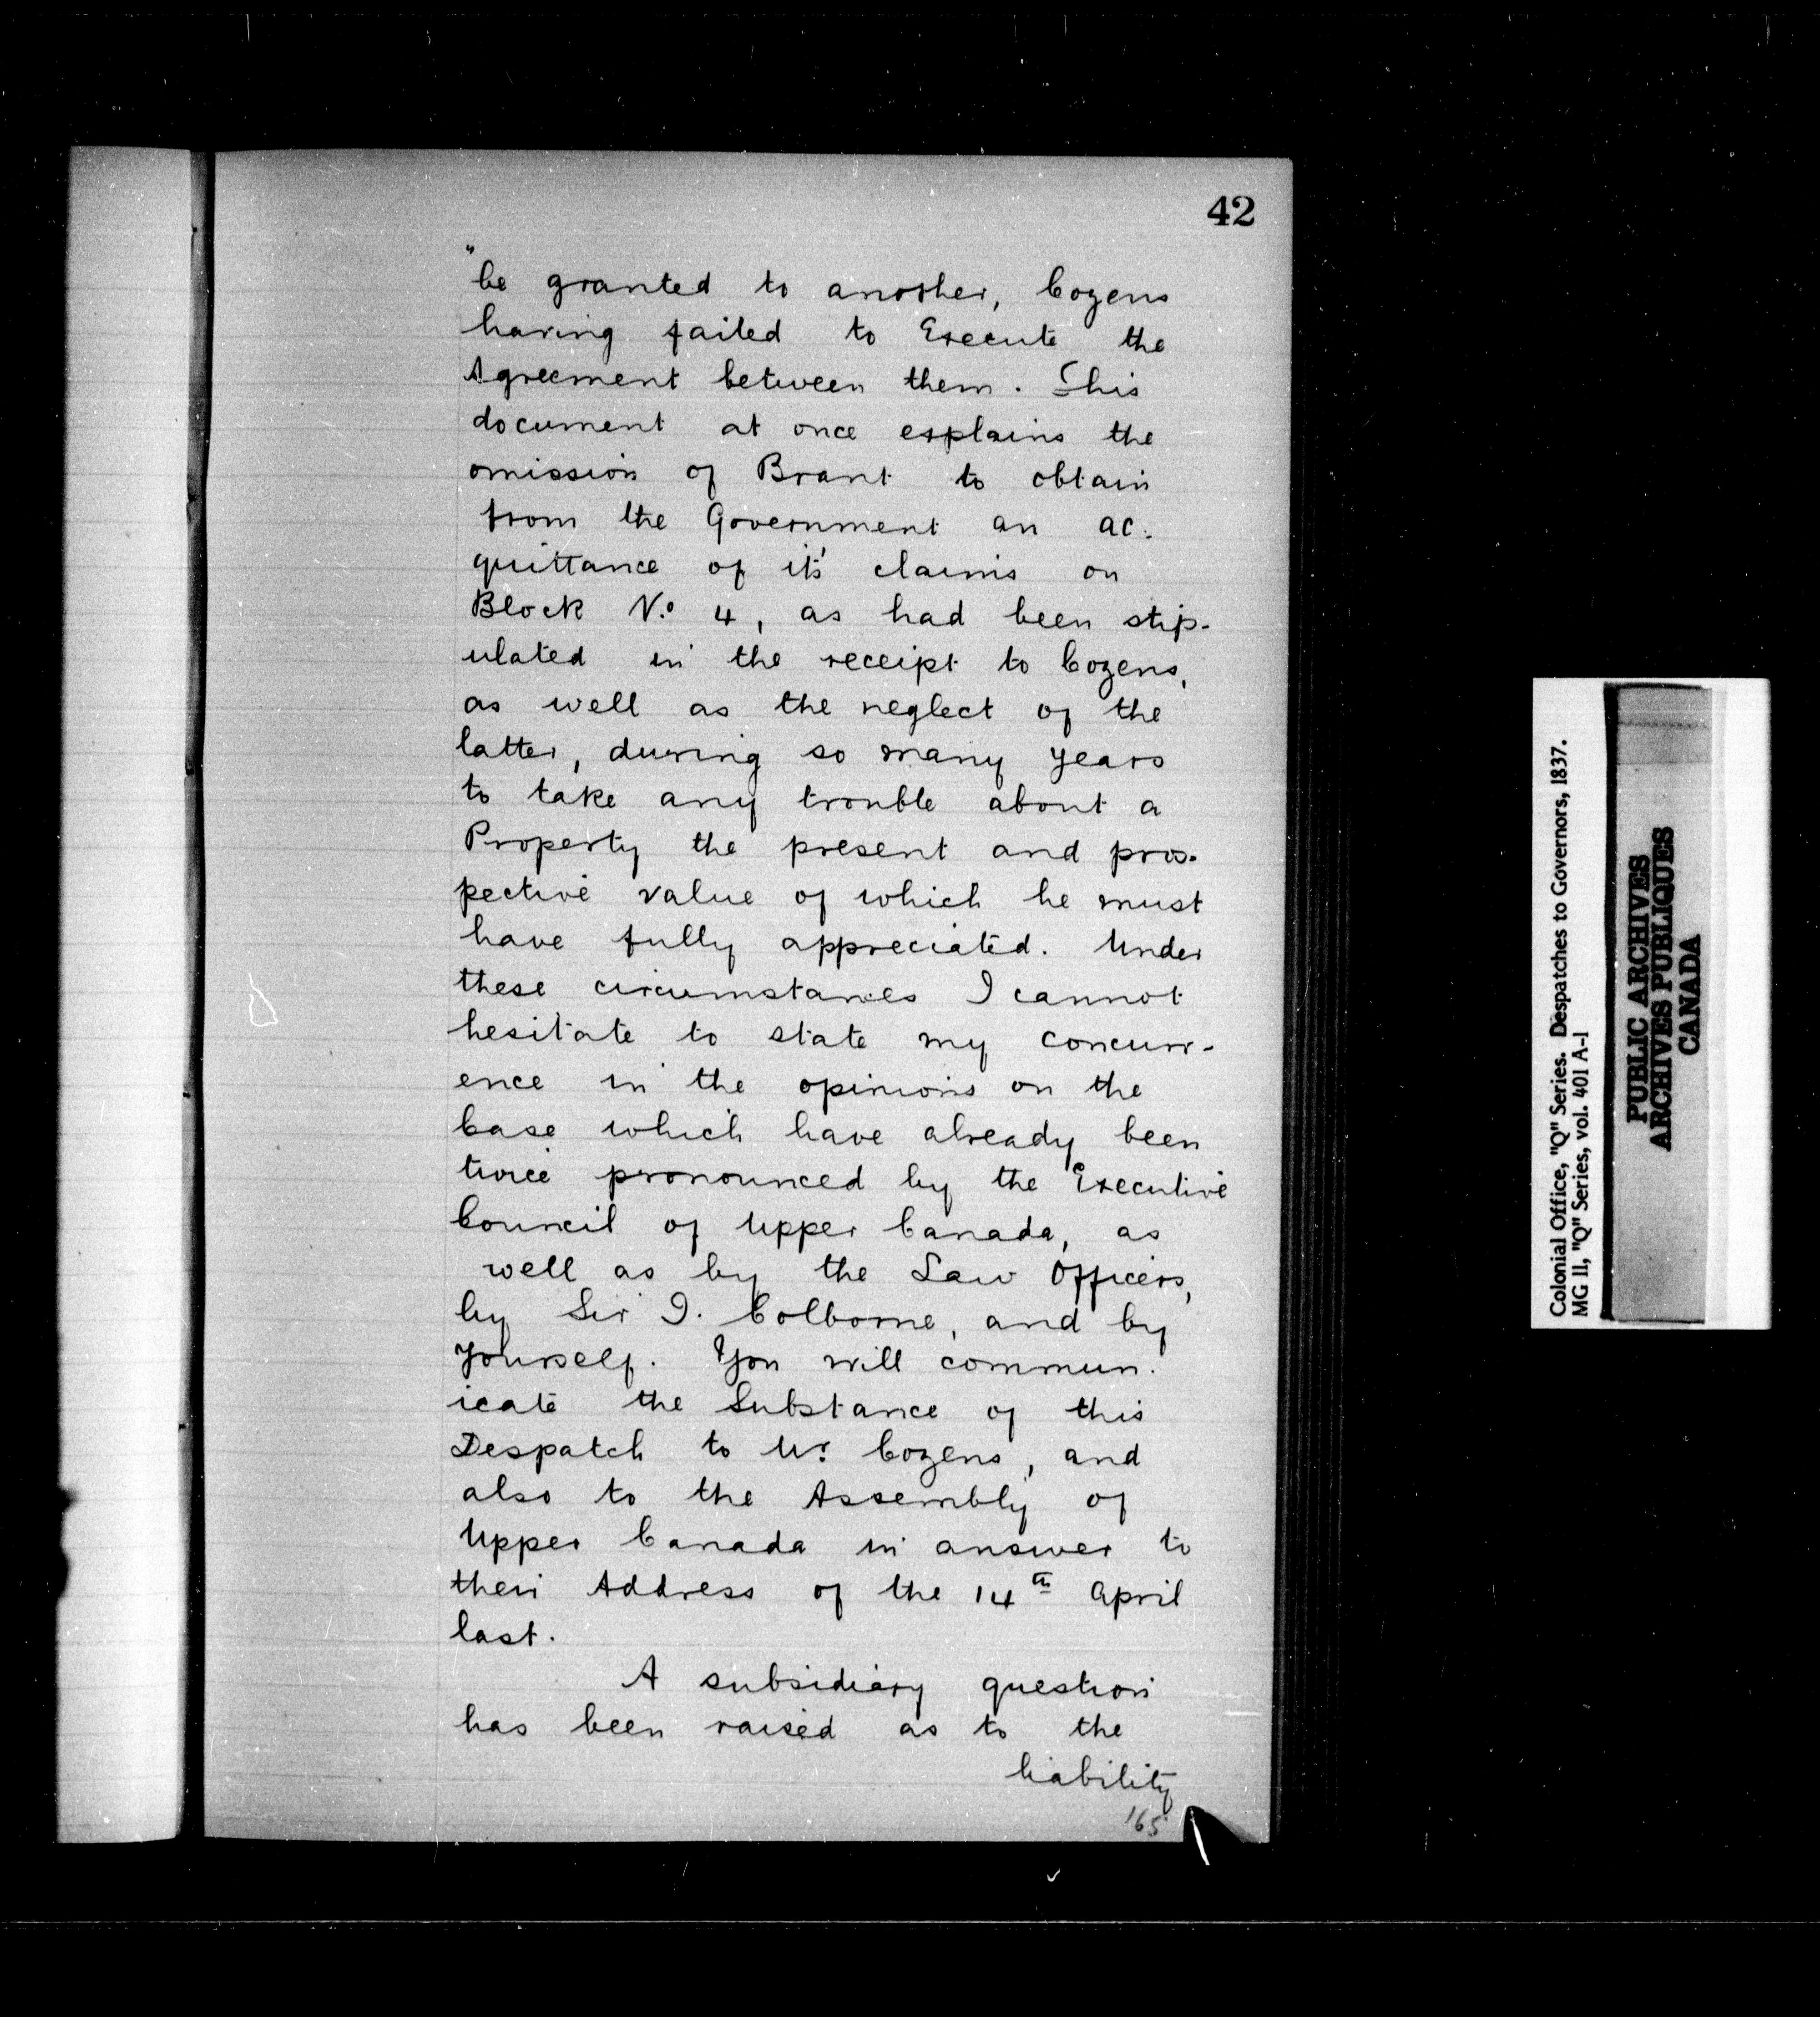 42
"be granted to another, Cozens
having failed to Execute the
Agreement between them. This
document at once explains the
omission of Brant to obtain
from the Government an ac-
quittance of it's claims on
Block No. 4, as had been stip-
ulated in the receipt to Cozens,
as well as the neglect of the
latter, during so many years
to take any trouble about a
Property the present and pros-
pective value of which he must
have fully appreciated. Under
these circumstances I cannot
hesitate to state my concurr-
ence in the opinions on the
Case which have already been
twice pronounced by the Executive
Council of Upper Canada, as
well as by the Law Officers,
by Sir J. Colborne, and by
Yourself. You will commun-
icate the Substance of this
Despatch to Mr. Cozens, and
also to the Assembly of
Upper Canada in answer to
their Address of the 14th April
last.
A subsidiary question
has been raised as to the
liability
165
Colonial Office, "Q" Series. Despatches to Governors, 1837.
MG 11, "Q" Series, vol. 401 A-1
PUBLIC ARCHIVES
ARCHIVES PUBLIQUES
CANADA